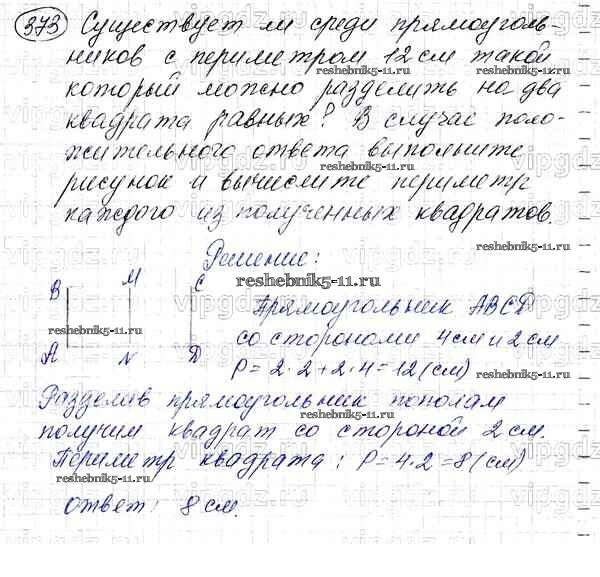 373 Существует ли среди прямоуголь-
ников с периметром 12 см такой
который можно разделить на два
квадрата равных? В случае поло-
жительного ответа выполните
рисунок и вычислите периметр
каждого из полученных квадратов.
Решение:
B M C
Прямоугольник ABCD
со сторонами 4см и 2 см
A N D
P = 2·2+2·4=12 (см)
Разделив прямоугольник пополам
получим квадрат со стороной 2 см.
Периметр квадрата: P=4·2=8 (см)
ответ: 8 см.
reshebnik5-11.ru
reshebnik5-11.ru
reshebnik5-11.ru
reshebnik5-11.ru
reshebnik5-11.ru
reshebnik5-11.ru
reshebnik5-11.ru
reshebnik5-11.ru
reshebnik5-11.ru
vipgdz.ru